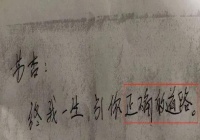 吉：
终我一生，引你正确的道路。